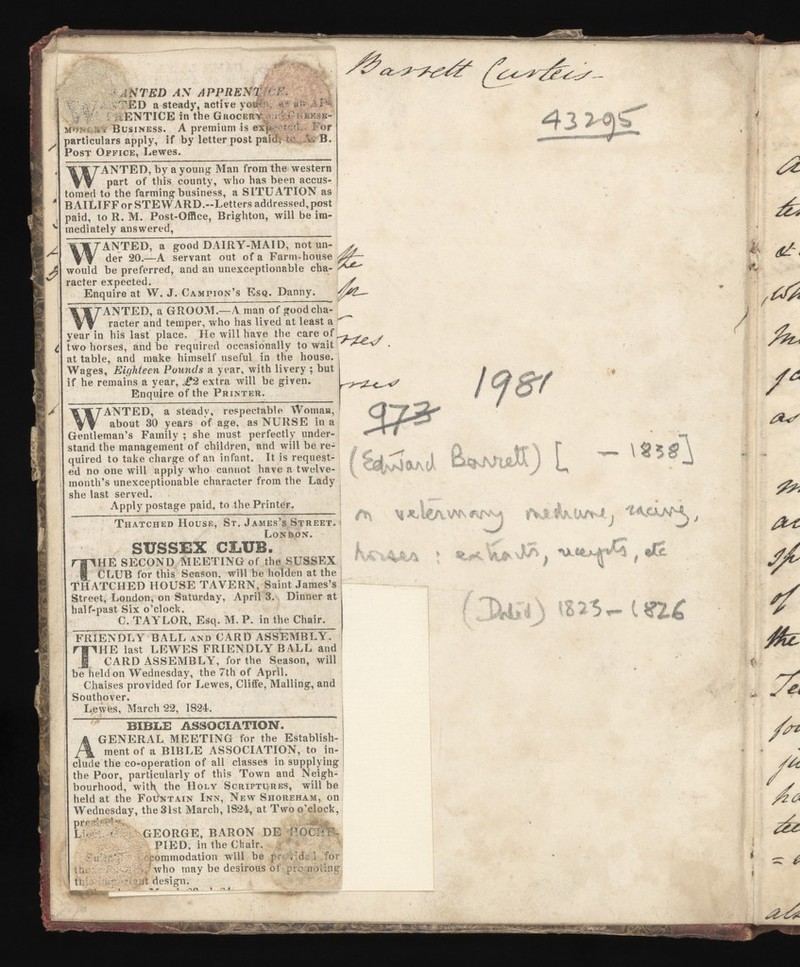 WANTED AN APPRENTICE.
WANTED a steady, active youth, as an AP-
PRENTICE in the GROCERY and CHEESE-
MONGERY BUSINESS. A premium is expected. For
particulars apply, if by letter post paid, to A. B.
POST OFFICE, Lewes.
WANTED, by a young Man from the western
part of this county, who has been accus-
tomed to the farming business, a SITUATION as
BAILIFF or STEWARD.--Letters addressed, post
paid, to R. M. Post-Office, Brighton, will be im-
mediately answered,
WANTED, a good DAIRY-MAID, not un-
der 20.—A servant out of a Farm-house
would be preferred, and an unexceptionable cha-
racter expected.
Enquire at W. J. CAMPION'S ESQ. Danny.
WANTED, a GROOM.—A man of good cha-
racter and temper, who has lived at least a
year in his last place. He will have the care of
two horses, and be required occasionally to wait
at table, and make himself useful in the house.
Wages, Eighteen Pounds a year, with livery; but
if he remains a year, £2 extra will be given.
Enquire of the PRINTER.
WANTED, a steady, respectable Woman,
about 30 years of age, as NURSE in a
Gentleman's Family; she must perfectly under-
stand the management of children, and will be re-
quired to take charge of an infant. It is request-
ed no one will apply who cannot have a twelve-
month's unexceptionable character from the Lady
she last served.
Apply postage paid, to the Printer.
THATCHED HOUSE, ST. JAMES'S STREET.
LONDON.
SUSSEX CLUB.
THE SECOND MEETING of the SUSSEX
CLUB for this Season, will be holden at the
THATCHED HOUSE TAVERN, Saint James's
Street, London, on Saturday, April 3. Dinner at
half-past Six o'clock.
C. TAYLOR, Esq. M. P. in the Chair.
FRIENDLY BALL AND CARD ASSEMBLY.
THE last LEWES FRIENDLY BALL and
CARD ASSEMBLY, for the Season, will
be held on Wednesday, the 7th of April.
Chaises provided for Lewes, Cliffe, Malling, and
Southover.
Lewes, March 22, 1824.
BIBLE ASSOCIATION.
A GENERAL MEETING for the Establish-
ment of a BIBLE ASSOCIATION, to in-
clude the co-operation of all classes in supplying
the Poor, particularly of this Town and Neigh-
bourhood, with the HOLY SCRIPTURES, will be
held at the FOUNTAIN INN, NEW SHOREHAM, on
Wednesday, the 31st March, 1824, at Two o'clock,
GEORGE, BARON DE ROCHE-
PIED, in the Chair.
accommodation will be provided for
who may be desirous of promoting
this important design.
Barrett Curteis
43295
the
for
rses.
rses
1981
973
(Edward Barrett) [ — 1838]
on veterinary medicine, racing,
horses: extracts, receipts, etc
(Dated) 1823–1826
of
the
as